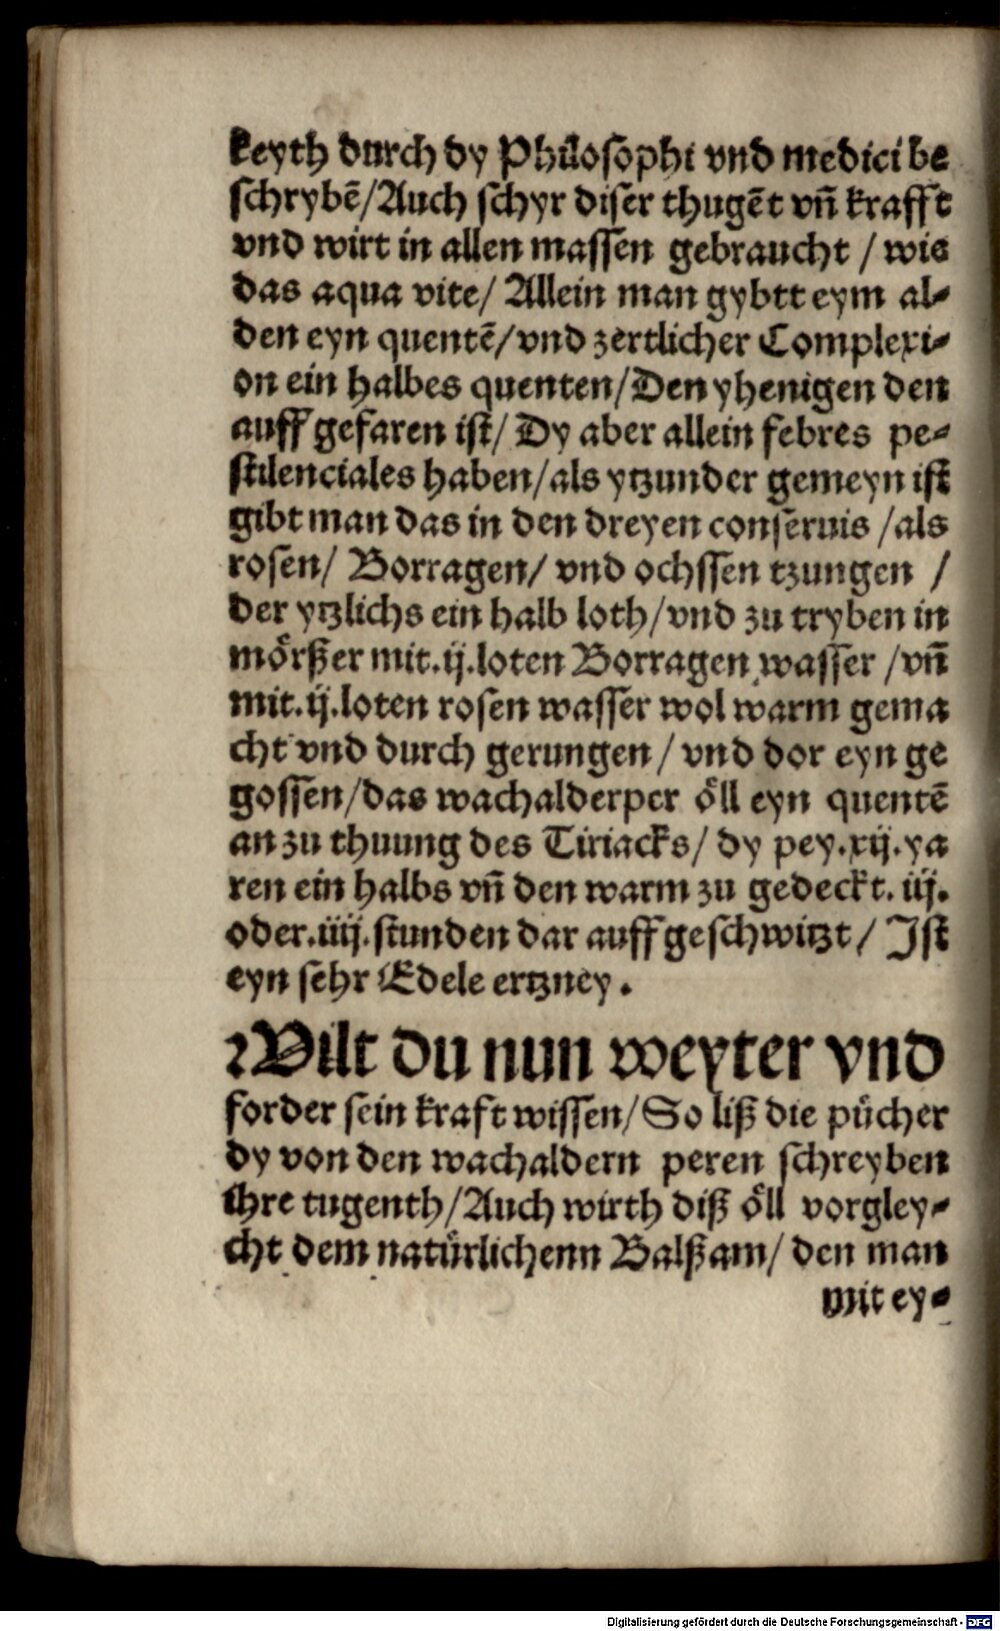 keyth durch dy Philosophi vnd medici be
schrybē/Auch schyr diser thugēt vñ krafft
vnd wirt in allen massen gebraucht / wie
das aqua vite/ Allein man gybtt eym al-
den eyn quentē/vnd zertlicher Complexi-
on ein halbes quenten/Den yhenigen den
auff gefaren ist/ Dy aber allein febres pe-
stilenciales haben/als ytzunder gemeyn ist
gibt man das in den dreyen conseruis /als
rosen/ Borragen/ vnd ochssen tzungen /
der ytzlichs ein halb loth/vnd zu tryben in
mörßer mit.ij.loten Borragen wasser /vñ
mit.ij.loten rosen wasser wol warm gema
cht vnd durch gerungen / vnd dor eyn ge
gossen/das wachalderper öll eyn quentē
an zu thuung des Tiriacks/ dy pey.xij.ya
ren ein halbs vñ den warm zu gedeckt. iij.
oder.iiij.stunden dar auff geschwitzt/ Ist
eyn sehr Edele ertzney.
Wilt du nun weyter vnd
forder sein kraft wissen/So liß die pücher
dy von den wachaldern peren schreyben
ihre tugenth/Auch wirth diß öll vorgley-
cht dem natürlichenn Balßam/ den man
mit ey-
Digitalisierung gefördert durch die Deutsche Forschungsgemeinschaft - DFG